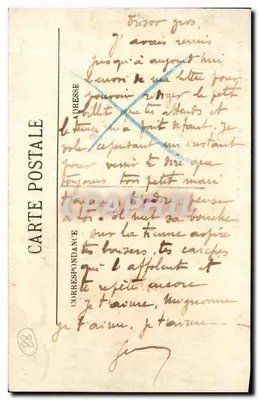 Trésor gros,
J'avais remis
jusqu'à aujourd'hui
l'envoi de ma lettre pour
pouvoir rédiger le petit
billet que tu attends et
le temps m'a fait défaut. Je
vole cependant un instant
pour venir te dire que
toujours ton petit mari
t'adore
à toi. Il met sa bouche
sur la tienne aspire
tes baisers, tes caresses
qui l'affolent et
te répète encore
je t'aime, mignonne
je t'aime, je t'aime
CARTE POSTALE
CORRESPONDANCE
ADRESSE
88